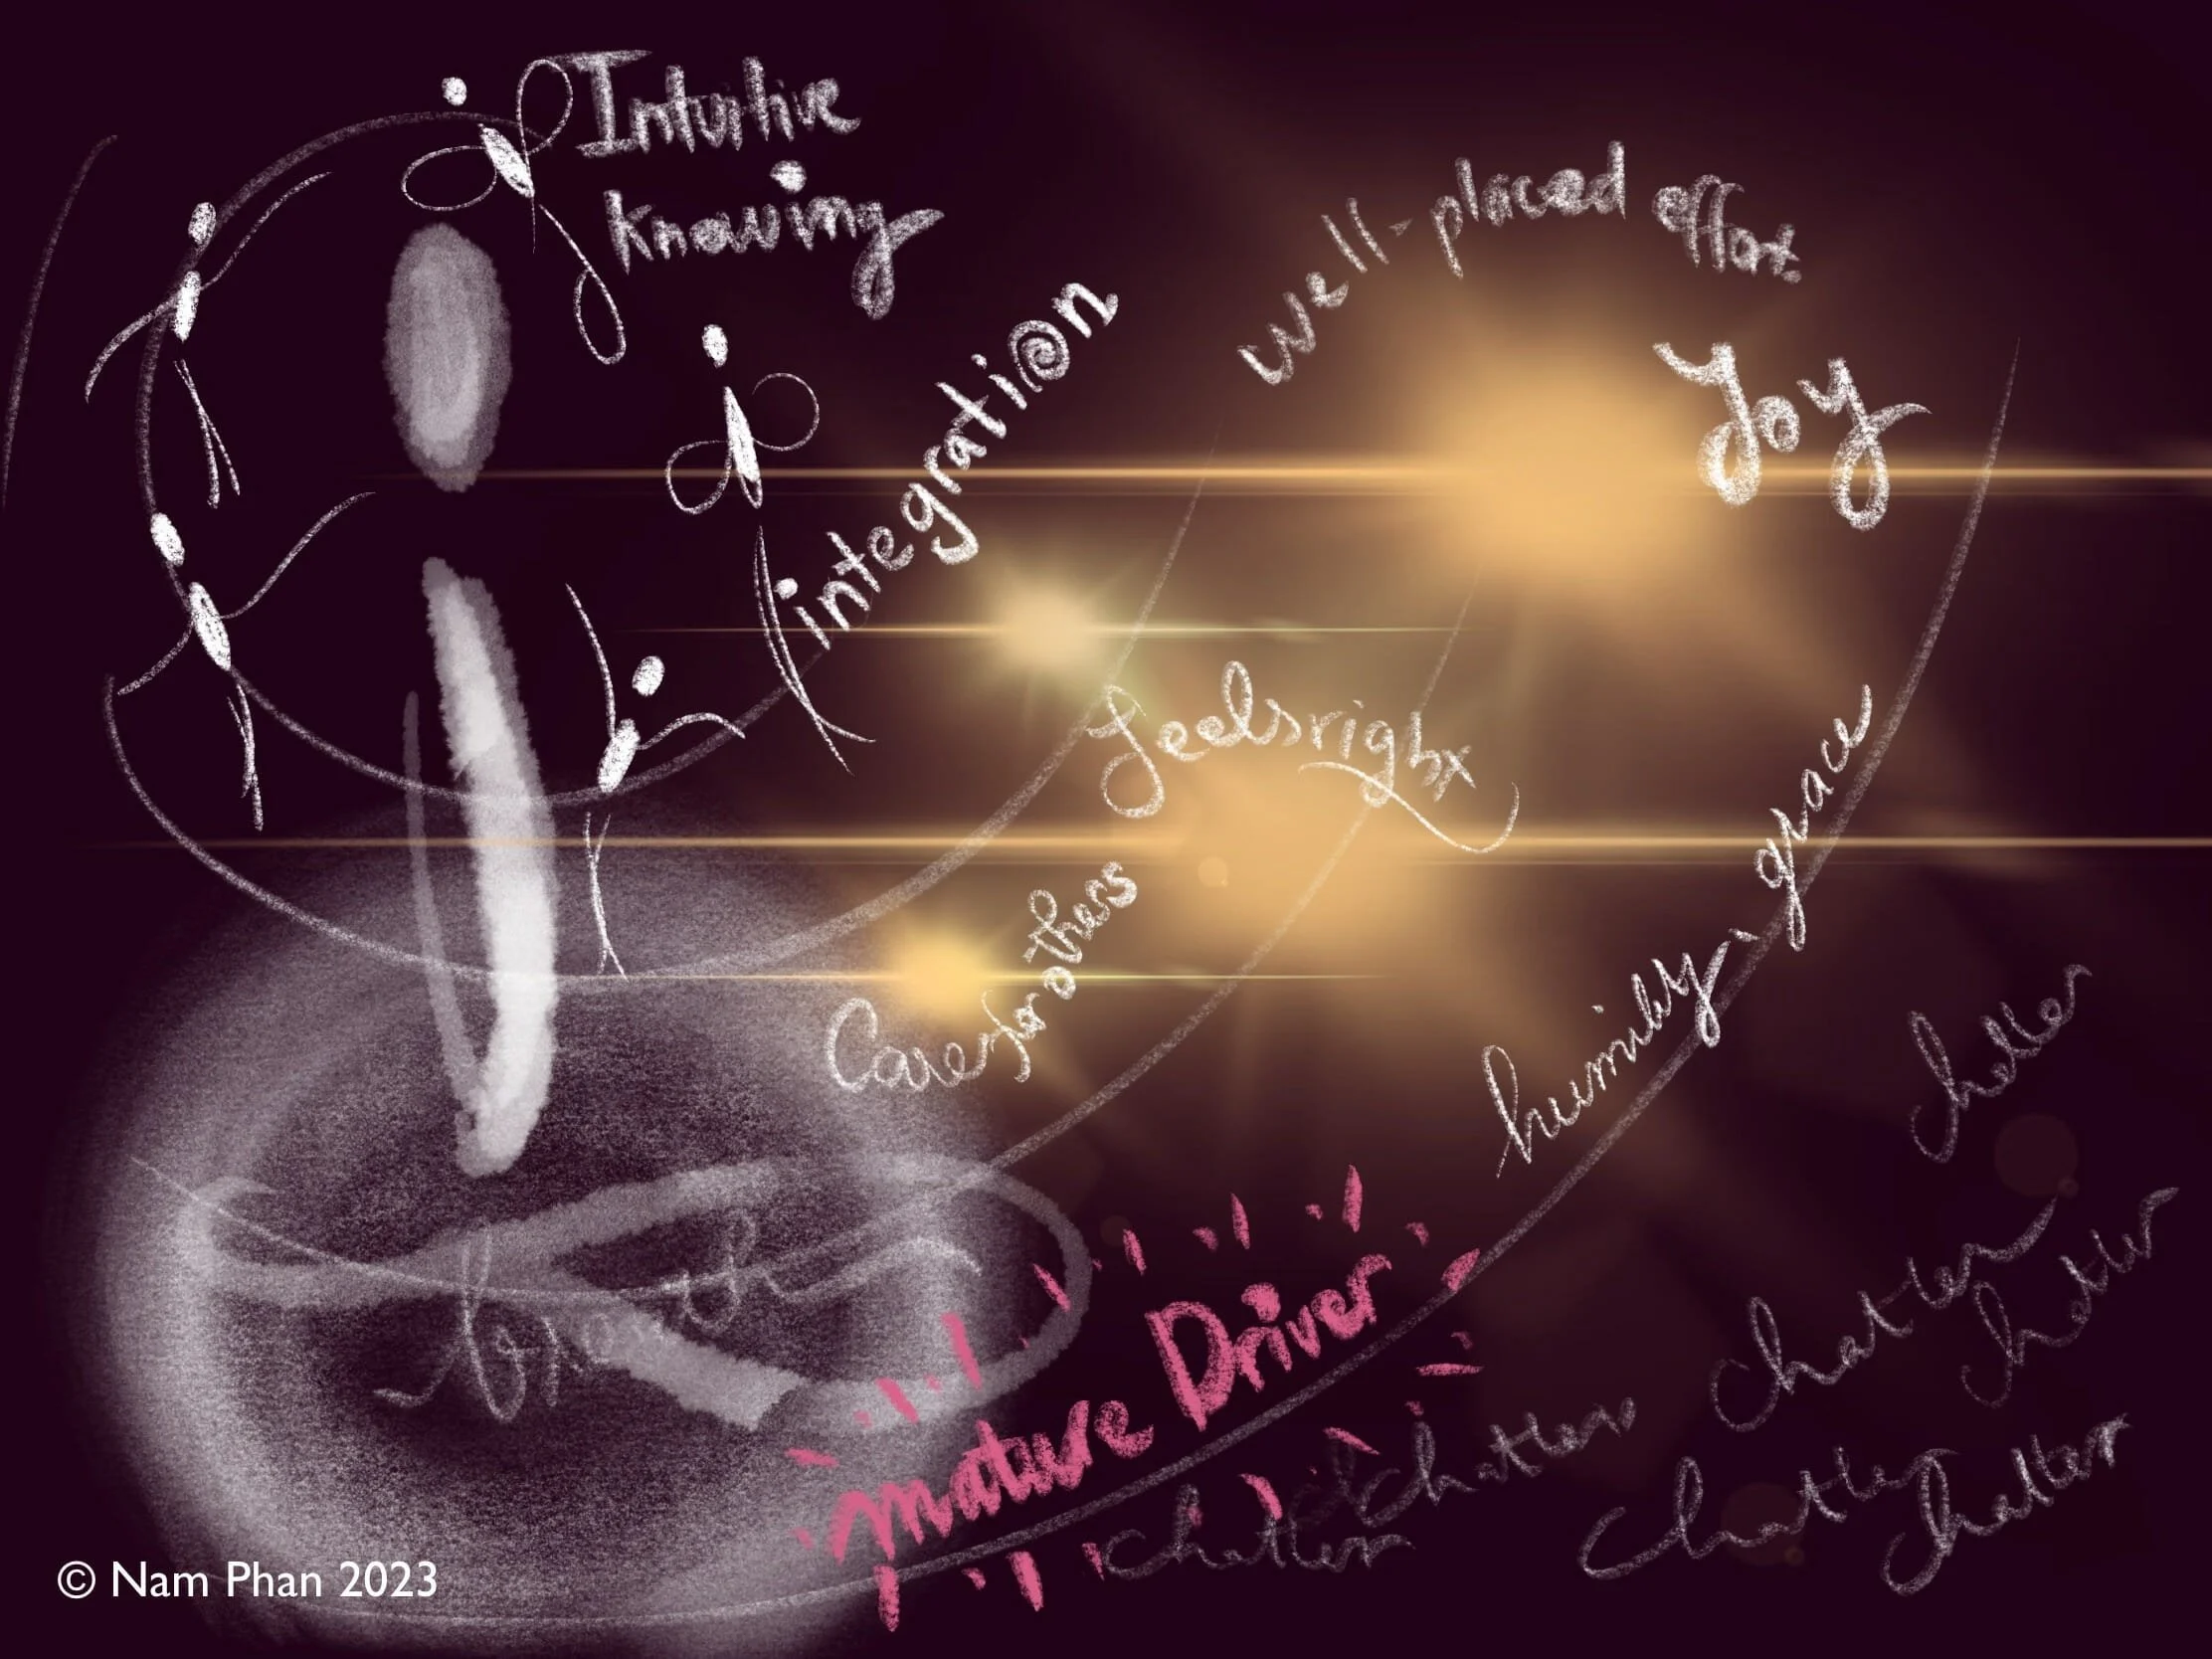 Intuitive
knowing
integration
well-placed effort
Joy
feels right
Care for others
humility, grace
breath
mature Driver
chatter
chatter
chatter
chatter
chatter
chatter
chatter
© Nam Phan 2023